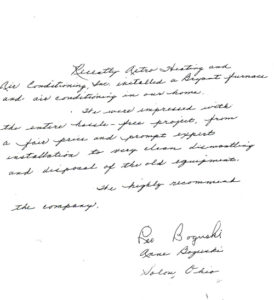 Recently Astro Heating and
Air Conditioning, Inc. installed a Bryant furnace
and air conditioning in our home.
We were impressed with
the entire hassle-free project, from
a fair price and prompt expert
installation to very clean dismantling
and disposal of the old equipment.
We highly recommend
the company.
Boguski
Anne Boguski
Solon, Ohio